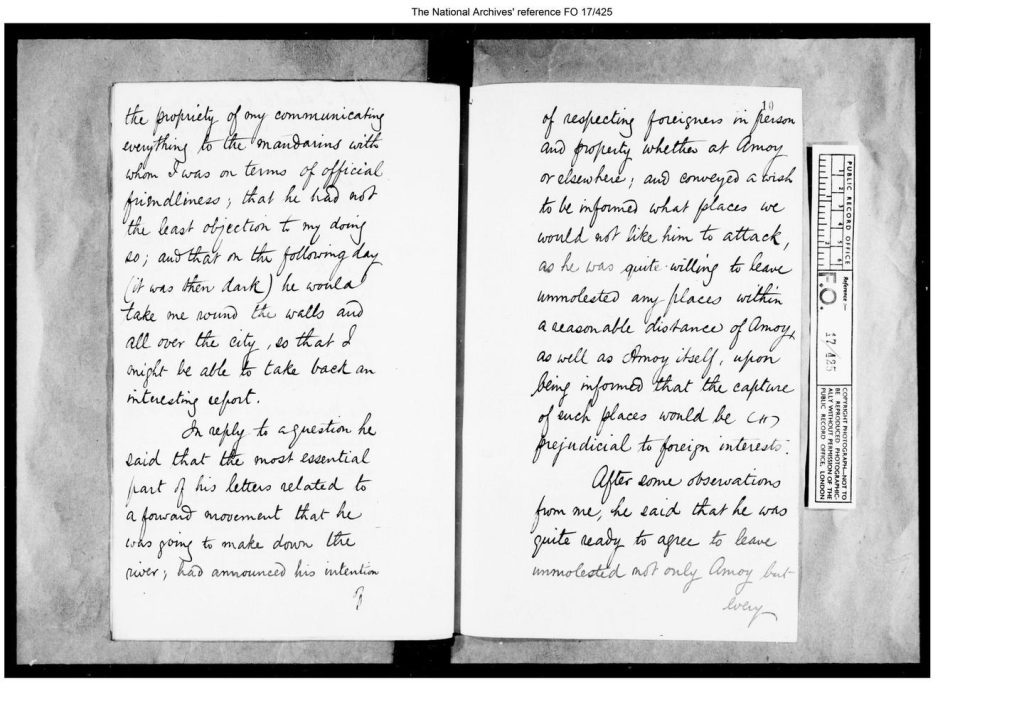 The National Archives' reference FO 17/425
the propriety of my communicating
everything to the mandarins with
whom I was on terms of official
friendliness; that he had not
the least objection to my doing
so; and that on the following day
(it was then dark) he would
take me round the walls and
all over the city, so that I
might be able to take back an
interesting report.
In reply to a question he
said that the most essential
part of his letters related to
a forward movement that he
was going to make down the
river; had announced his intention
of
10
of respecting foreigners in person
and property whether at Amoy
or elsewhere; and conveyed a wish
to be informed what places we
would not like him to attack,
as he was quite willing to leave
unmolested any places within
a reasonable distance of Amoy,
as well as Amoy itself, upon
being informed that the capture
of such places would be
prejudicial to foreign interests.
After some observations
from me, he said that he was
quite ready to agree to leave
unmolested not only Amoy but
every
PUBLIC RECORD OFFICE
1 2 3 4 5 6
Reference:-
F.O.
17/425
COPYRIGHT PHOTOGRAPH—NOT TO
BE REPRODUCED PHOTOGRAPHIC-
ALLY WITHOUT PERMISSION OF THE
PUBLIC RECORD OFFICE, LONDON